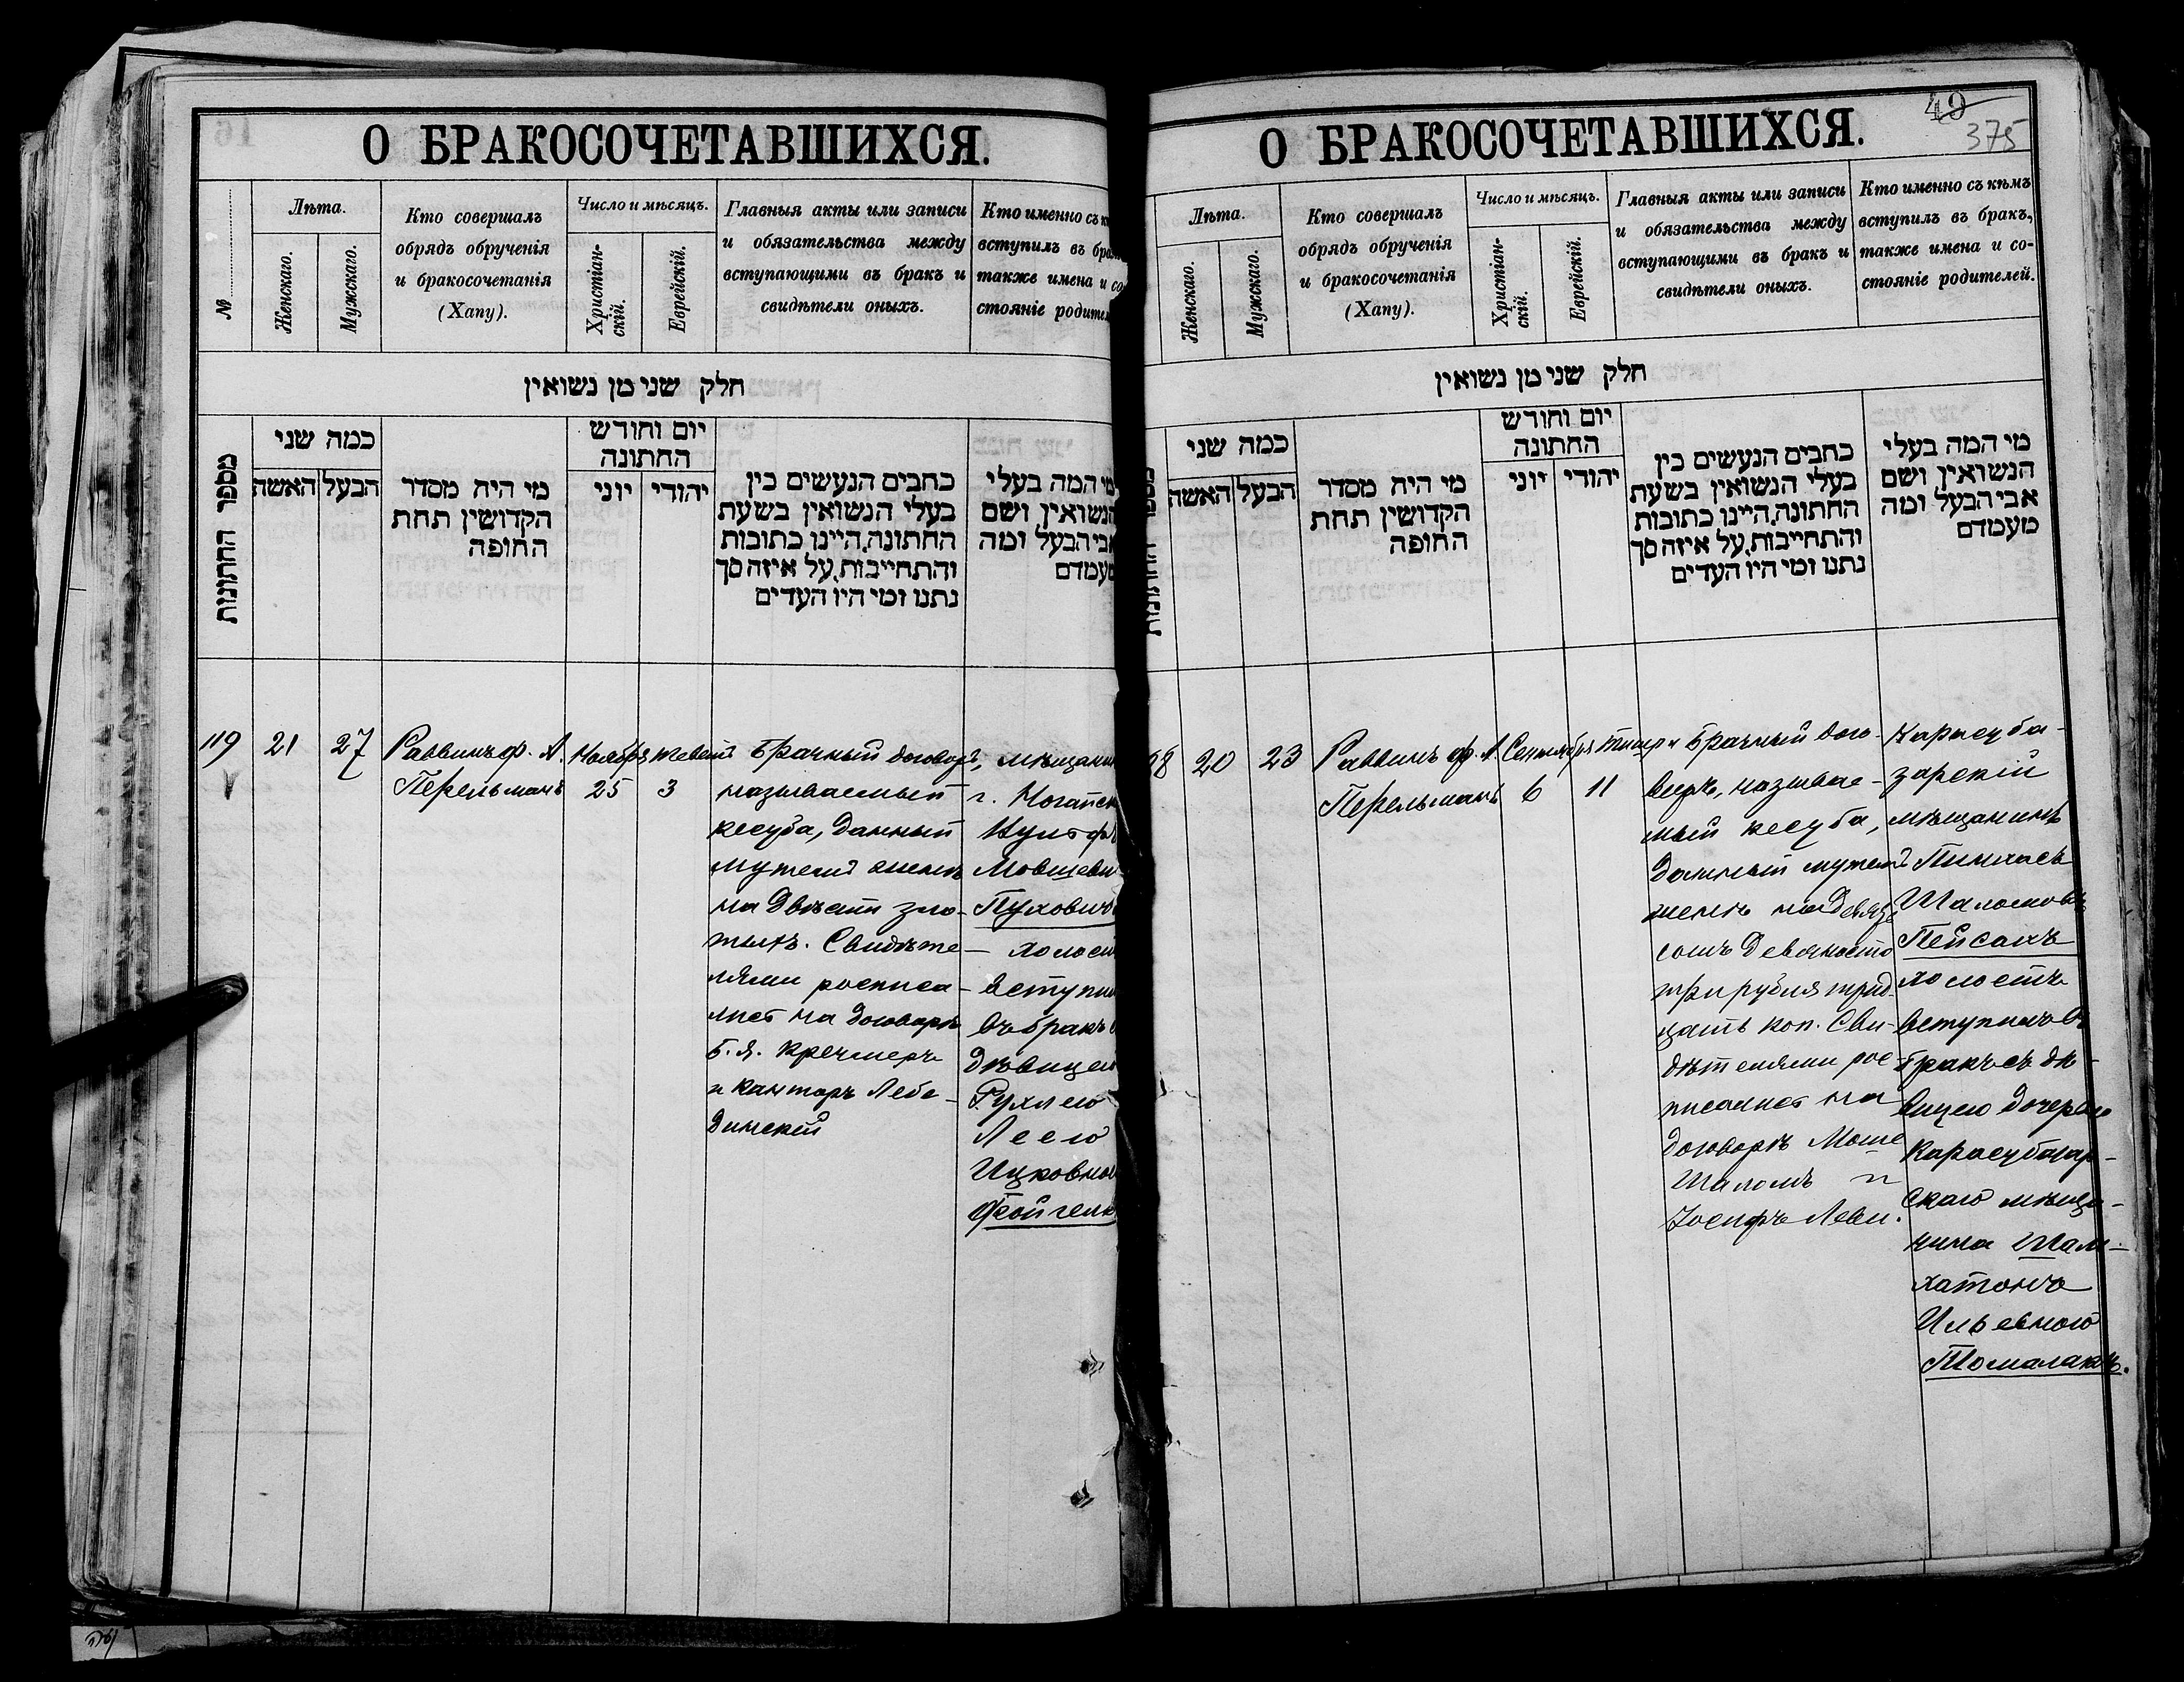 О БРАКОСОЧЕТАВШИХСЯ.
№
Лѣта.
Женскаго.
Мужскаго.
Кто совершалъ
обрядъ обрученія
и бракосочетанія
(Хапу).
Число и мѣсяцъ.
Христіан-
скій.
Еврейскій.
Главныя акты или записи
и обязательства между
вступающими въ бракъ и
свидѣтели оныхъ.
Кто именно съ
вступилъ въ
также имена и
стояніе
חלק שני מן נשואין
מספר החתונות
כמה שני
האשה
הבעל
מי היה מסדר
הקדושין תחת
החופה
יום וחודש
החתונה
יוני
יהודי
כתבים הנעשים בין
בעלי הנשואין בשעת
החתונה, היינו כתובות
והתחייבות, על איזה סך
נתנו ומי היו העדים
מי המה בעלי
הנשואין ושם
אבי הבעל ומה
מעמדם
119
21
27
Раввинъ ф. А.
Перельманъ
Ноября
25
Тевет
3
Брачный договоръ,
называемый
кесуба, данный
мужемъ женѣ
на двѣсти зло-
тыхъ. Свидѣте-
лями росписа-
лись на договорѣ
Б. Я. Кречмеръ
и канторъ Лебе-
динскій
мѣщанин
г. Ногайск
Мовшеви
Пухович
холост
вступил
въ бракъ
дѣвицею
Рухлею
Леею
Ицковною
Фейгел
О БРАКОСОЧЕТАВШИХСЯ.
40
375
Лѣта.
Женскаго.
Мужскаго.
Кто совершалъ
обрядъ обрученія
и бракосочетанія
(Хапу).
Число и мѣсяцъ.
Христіан-
скій.
Еврейскій.
Главныя акты или записи
и обязательства между
вступающими въ бракъ и
свидѣтели оныхъ.
Кто именно съ кѣмъ
вступилъ въ бракъ,
также имена и со-
стояніе родителей.
חלק שני מן נשואין
כמה שני
האשה
הבעל
מי היה מסדר
הקדושין תחת
החופה
יום וחודש
החתונה
יוני
יהודי
כתבים הנעשים בין
בעלי הנשואין בשעת
החתונה, היינו כתובות
והתחייבות, על איזה סך
נתנו ומי היו העדים
מי המה בעלי
הנשואין ושם
אבי הבעל ומה
מעמדם
8
20
23
Раввинъ ф. А.
Перельманъ
Сентября
6
Тишри
11
Брачный дого-
воръ, называе-
мый кесуба,
данный мужемъ
женѣ на девять
сотъ девяносто
три рубля трид-
цать коп. Сви-
дѣтелями рос-
писались на
договорѣ Моше
Шаломъ и
Іосифъ Леви.
Карасуба-
зарскій
мѣщанинъ
Пинхасъ
Шаломовъ
Пейсахъ
холостъ
вступилъ въ
бракъ съ дѣ-
вицею дочерью
Карасубазар-
скаго мѣща-
нина Шам-
хатонъ
Ильевною
Томалакъ.